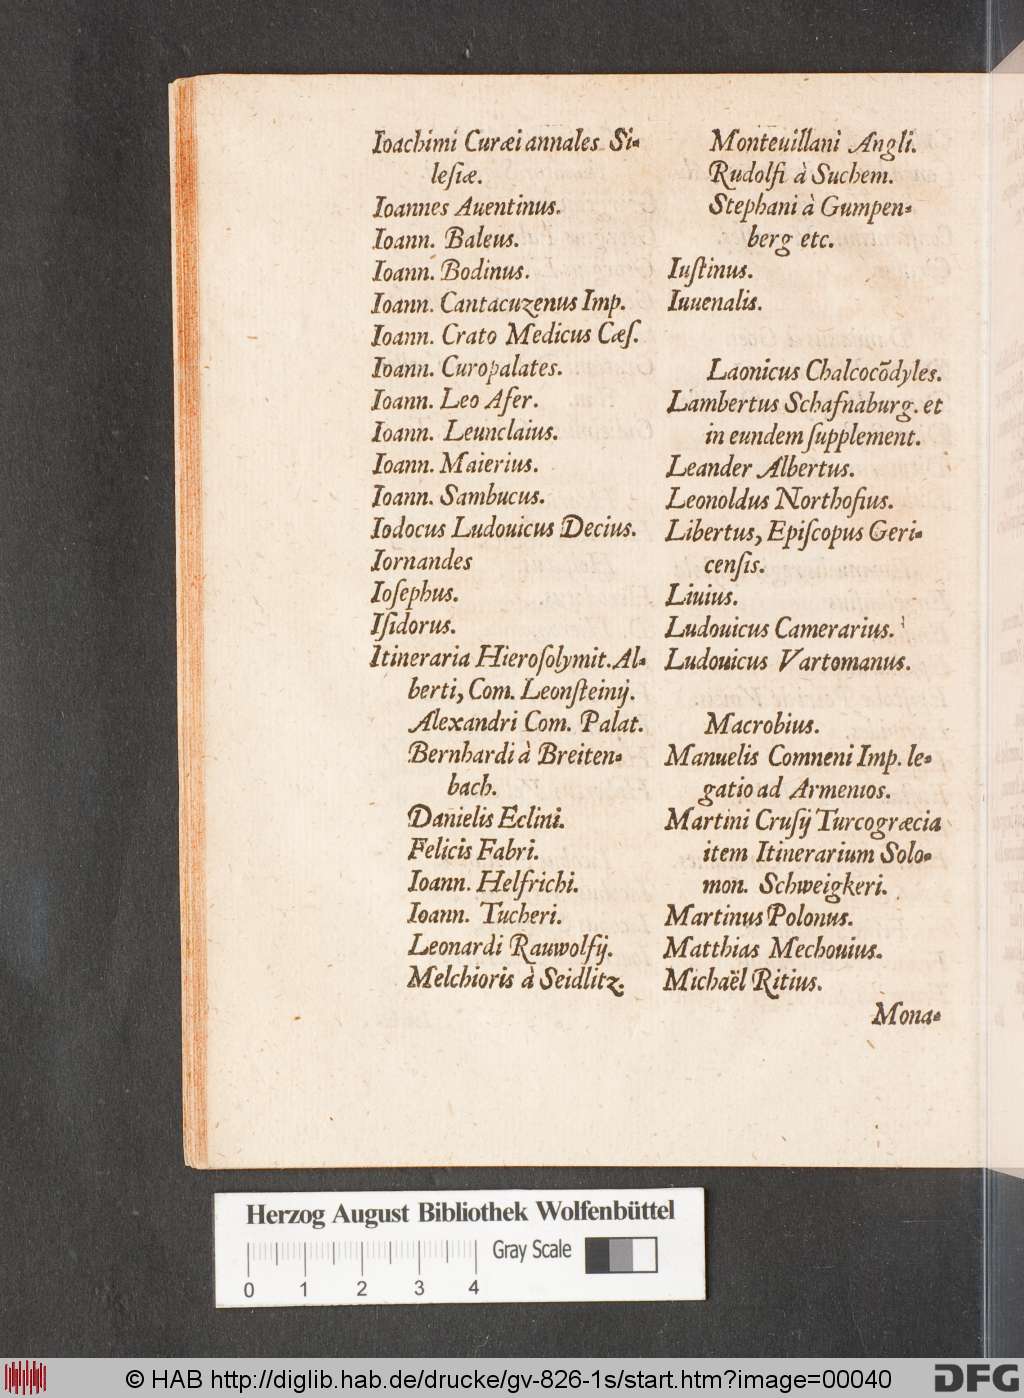 Ioachimi Curæi annales Si-
leſiæ.
Ioannes Auentinus.
Ioann. Baleus.
Ioann. Bodinus.
Ioann. Cantacuzenus Imp.
Ioann. Crato Medicus Cæſ.
Ioann. Curopalates.
Ioann. Leo Afer.
Ioann. Leunclaius.
Ioann. Maierius.
Ioann. Sambucus.
Iodocus Ludouicus Decius.
Iornandes
Ioſephus.
Iſidorus.
Itineraria Hieroſolymit. Al-
berti, Com. Leonſteinij.
Alexandri Com. Palat.
Bernhardi à Breiten-
bach.
Danielis Eclini.
Felicis Fabri.
Ioann. Helfrichi.
Ioann. Tucheri.
Leonardi Rauwolfij.
Melchioris à Seidlitz.
Monteuillani Angli.
Rudolfi à Suchem.
Stephani à Gumpen-
berg etc.
Iuſtinus.
Iuuenalis.
Laonicus Chalcocōdyles.
Lambertus Schafnaburg. et
in eundem ſupplement.
Leander Albertus.
Leonoldus Northofius.
Libertus, Epiſcopus Geri-
cenſis.
Liuius.
Ludouicus Camerarius.
Ludouicus Vartomanus.
Macrobius.
Manuelis Comneni Imp. le-
gatio ad Armenios.
Martini Cruſij Turcogræcia
item Itinerarium Solo-
mon. Schweigkeri.
Martinus Polonus.
Matthias Mechouius.
Michaël Ritius.
Mona-
Herzog August Bibliothek Wolfenbüttel
Gray Scale
0 1 2 3 4
© HAB http://diglib.hab.de/drucke/gv-826-1s/start.htm?image=00040
DFG